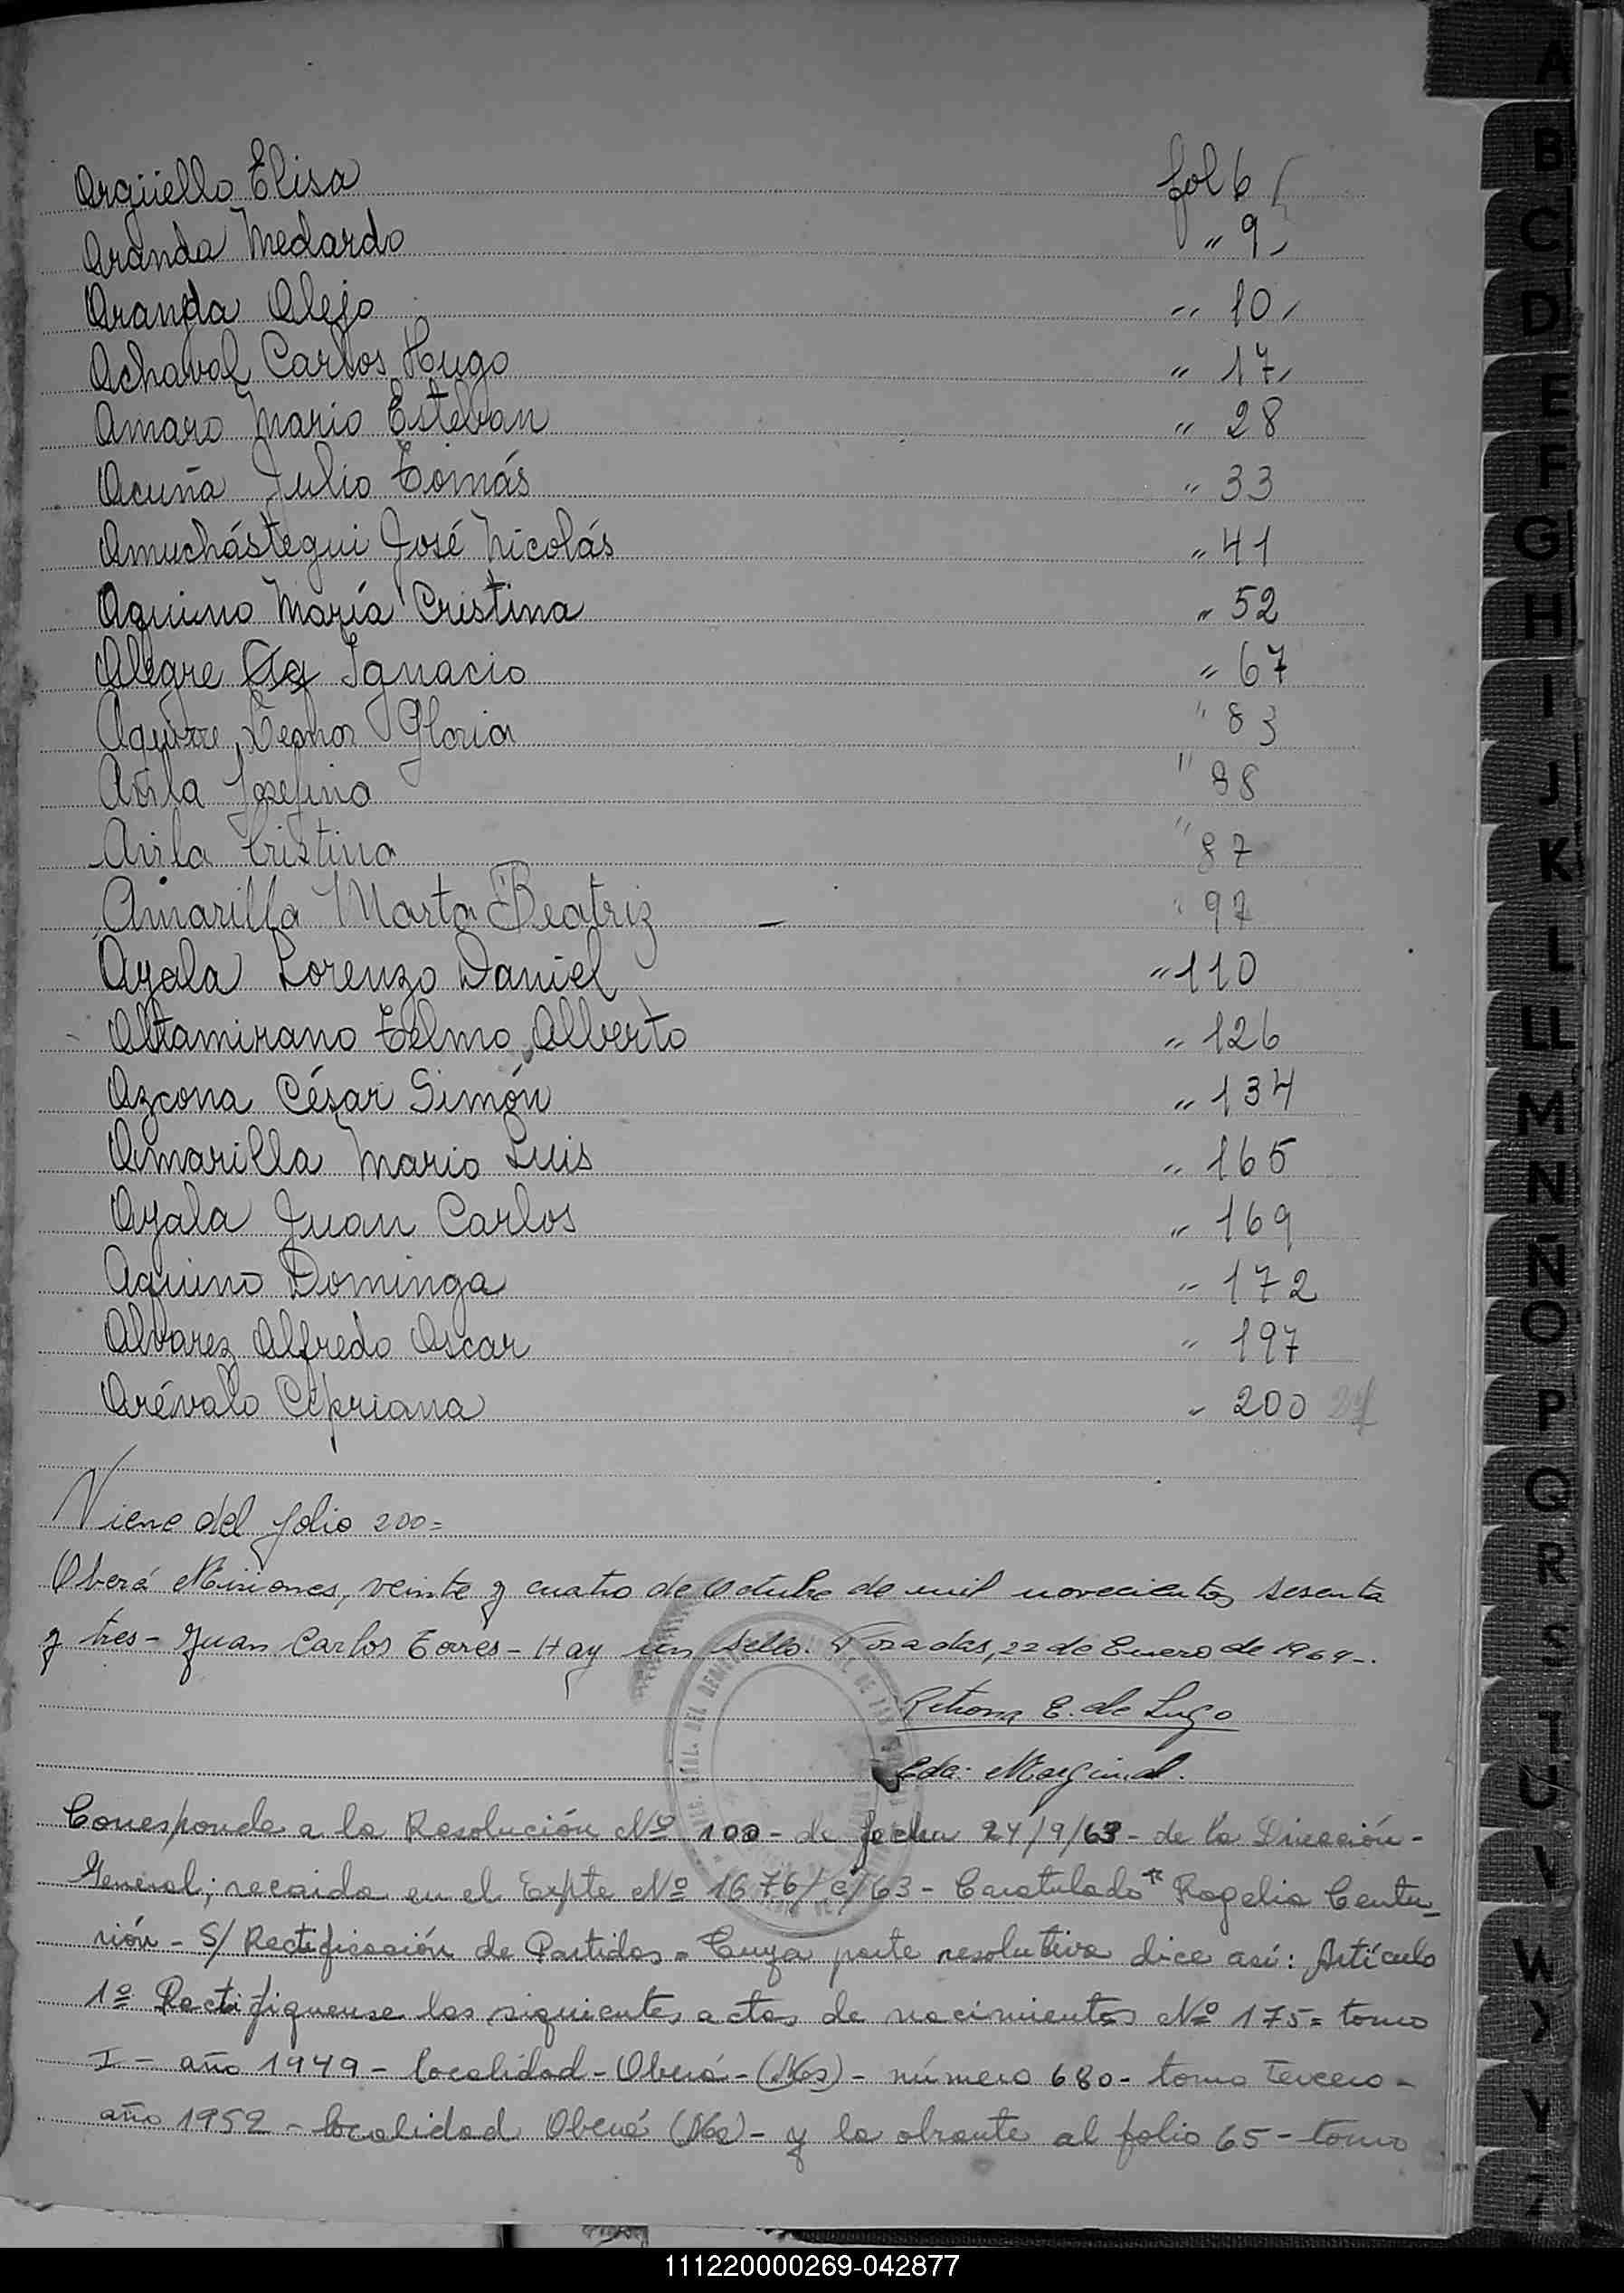 Argüello Elisa fol 6
Aranda Medardo " 9
Aranda Alejo " 10
Achaval Carlos Hugo " 17
Amaro Mario Esteban " 28
Acuña Julio Tomás " 33
Amuchástegui José Nicolás " 41
Aquino María Cristina " 52
Alegre Ignacio " 67
Aguirre, Leonor Gloria " 83
Avila Josefina " 88
Avila Cristina " 87
Amarilla Marta Beatriz — " 97
Ayala Lorenzo Daniel " 110
Altamirano Telmo Alberto " 126
Azcona César Simón " 134
Amarilla Mario Luis " 165
Ayala Juan Carlos " 169
Aquino Dominga " 172
Alvarez Alfredo Oscar " 197
Arévalo Cipriana " 200
Viene del folio 200=
Oberá Misiones, veinte y cuatro de Octubre de mil novecientos sesenta
y tres - Juan Carlos Torres - Hay un sello. Posadas, 22 de Enero de 1964-.
Petrona E. de Lugo
Eda: Marginal.
Corresponde a la Resolución Nº 100 - de fecha 24/9/63 - de la Dirección -
General; recaida en el Expte Nº 1676/c/63 - Caratulado " Rogelio Centu_
rión - S/ Rectificación de Partidas = Cuya parte resolutiva dice así: Artículo
1º Rectifiquense las siguientes actas de nacimientos Nº 175 = tomo
I - año 1949 - localidad - Oberá - (Mes) - número 680 - tomo Tercero -
año 1952 - localidad Oberá (Mes) - y la obrante al folio 65 - tomo
A
B
C
D
E
F
G
H
I
J
K
L
LL
M
N
Ñ
O
P
Q
R
S
T
U
V
W
X
Y
Z
111220000269-042877